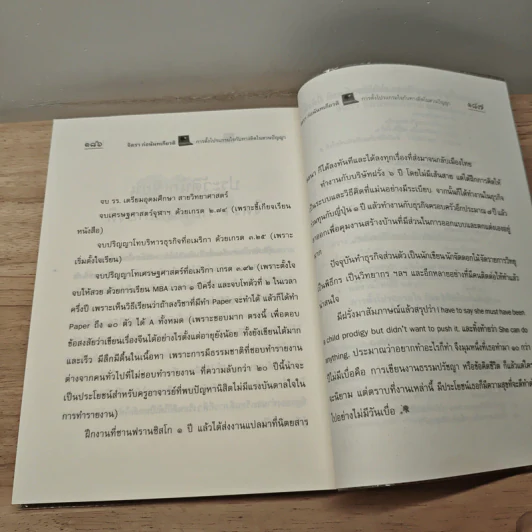 ๑๘๖
จบ รร. เตรียมอุดมศึกษา สายวิทยาศาสตร์
จบเศรษฐศาสตร์จุฬาฯ ด้วยเกรด ๒.๗๔ (เพราะขี้เกียจเรียน
หนังสือ)
จบปริญญาโทบริหารธุรกิจที่อเมริกา ด้วยเกรด ๓.๖๕ (เพราะ
เริ่มตั้งใจเรียน)
จบปริญญาโทเศรษฐศาสตร์ที่อเมริกา เกรด ๓.๙๒ (เพราะตั้งใจ
จบให้สวย ด้วยการเรียน MBA เวลา ๑ ปีครึ่ง และจบโทตัวที่ ๒ ในเวลา
ครึ่งปี เพราะเห็นวิธีเรียนว่าถ้าลงวิชาที่มีทำ Paper จะทำได้ แล้วก็ได้ทำ
Paper ถึง ๑๐ ตัว ได้ A ทั้งหมด (เพราะชอบมาก ตรงนี้ เพื่อตอบ
ข้อสงสัยว่าเขียนเรื่องจีนได้อย่างไรตั้งแต่อายุยังน้อย ทั้งยังเขียนได้มาก
และเร็ว มีลึกมีตื้นในเนื้อหา เพราะการมีธรรมชาติที่ชอบทำรายงาน
ต่างจากคนทั่วไปที่ไม่ชอบทำรายงาน ที่ความลับกว่า ๒๐ ปีนี้น่าจะ
เป็นประโยชน์สำหรับครูอาจารย์ที่พบปัญหานิสิตไม่มีแรงบันดาลใจใน
การทำรายงาน)
ฝึกงานที่ซานฟรานซิสโก ๑ ปี แล้วได้ส่งงานแปลมาที่นิตยสาร
๑๘๗
ก็ได้ลงทันทีและได้ลงทุกเรื่องที่ส่งมาจนกลับเมืองไทย
ทำงานกับบริษัทฝรั่ง ๖ ปี โดยไม่มีเส้นสาย แต่ได้ฝึกการคิดให้
เป็นระบบและวิธีคิดที่แม่นอย่างมีระเบียบ จากนั้นก็ได้ทำงานในธุรกิจ
ร่วมทุนกับญี่ปุ่น ๑ ปี แล้วทำงานกับธุรกิจครอบครัวอีกประมาณ ๑ ปี แล้ว
ลาออกเพื่อคุมงานสร้างบ้านที่มีส่วนในการออกแบบและตกแต่งเองอยู่
ปัจจุบันทำธุรกิจส่วนตัว เป็นนักเขียนนักจัดดอกไม้จัดรายการวิทยุ
เป็นพิธีกร เป็นวิทยากร ฯลฯ และอีกหลายอย่างที่มีคนติดต่อให้ทำแล้ว
น่าสนใจ
มีฝรั่งมาสัมภาษณ์แล้วสรุปว่า I have to say she must have been
a child prodigy but didn't want to push it. และทิ้งท้ายว่า She can do
anything. ประมาณว่าอยากทำอะไรก็ทำ จึงมุมหนึ่งที่เธอทำมา ๑๐ กว่า
ปีไม่เบื่อคือ การเขียนงานธรรมปรัชญา หรือข้อคิดชีวิต
แต่ตราบที่งานเหล่านี้ มีประโยชน์เธอก็มีความสุขที่จะทำ
ไปอย่างไม่มีวันเบื่อ